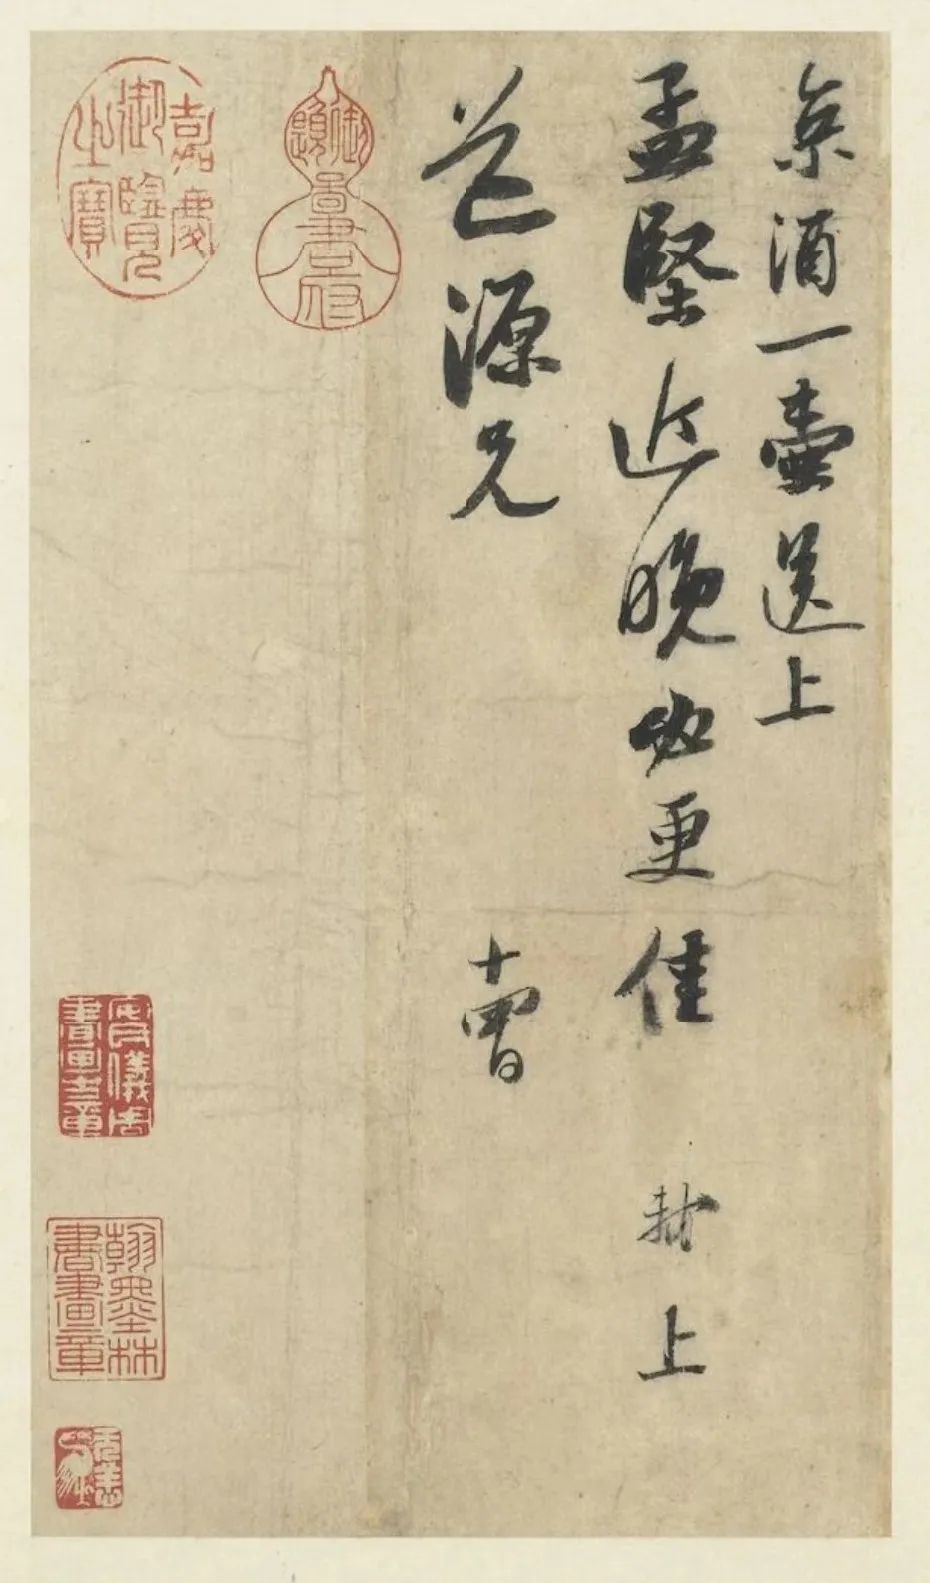 京酒一壷送上
孟堅近晚必更佳 軾上
道源兄 十四日
嘉慶
御覽
之寶
安儀周
書畫之章
翰墨林
書畫章